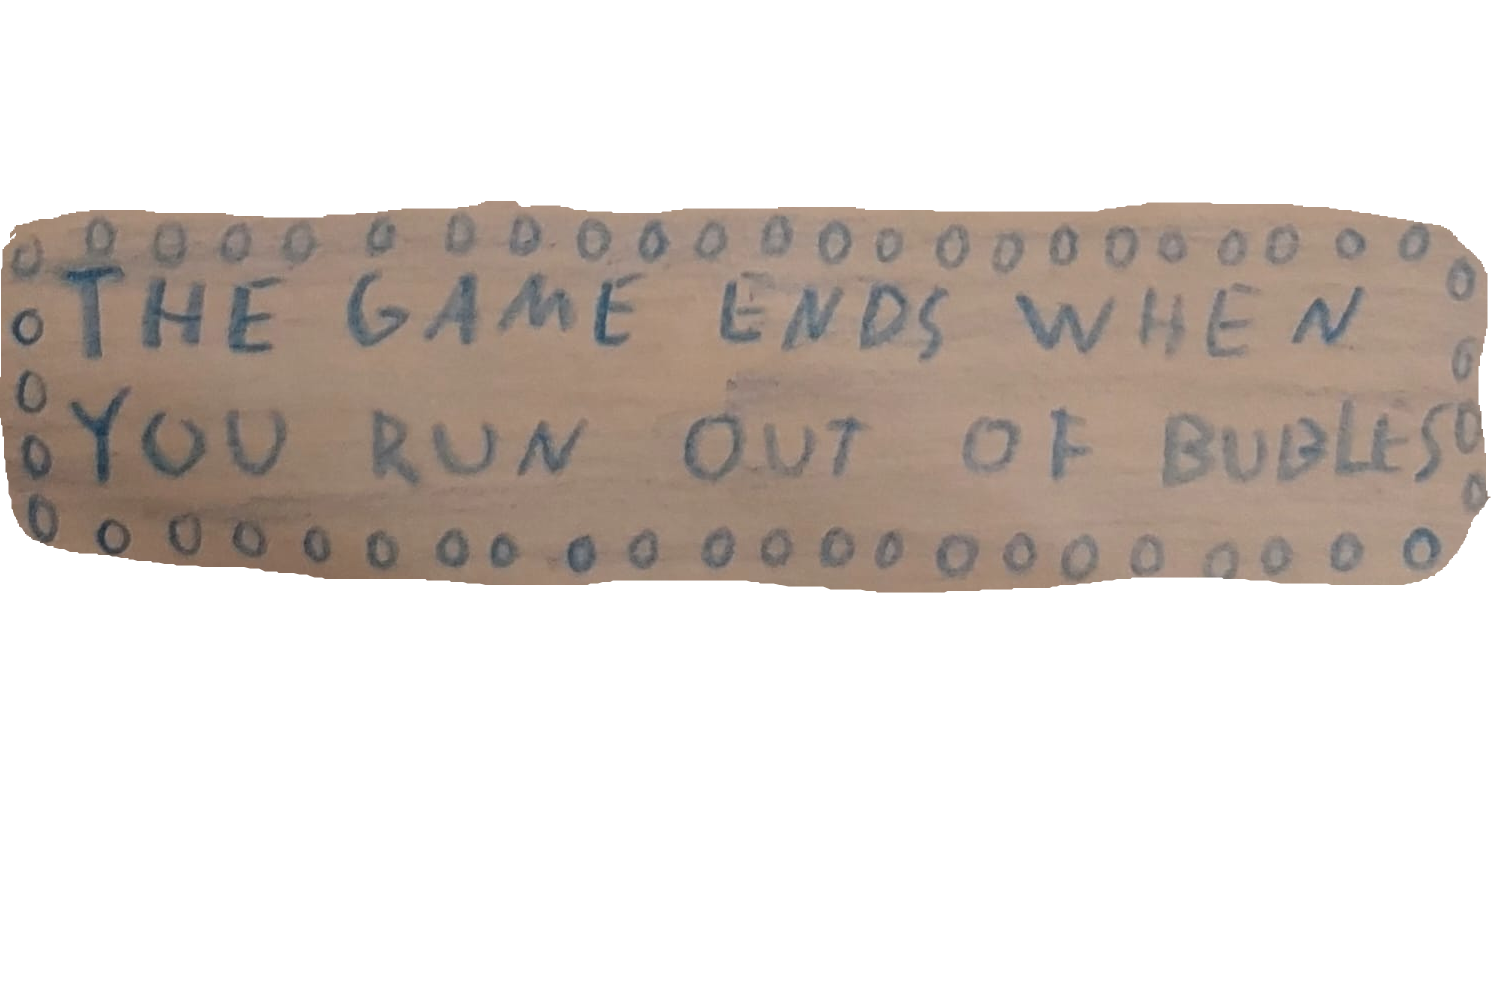 THE GAME ENDS WHEN
YOU RUN OUT OF BUBLES